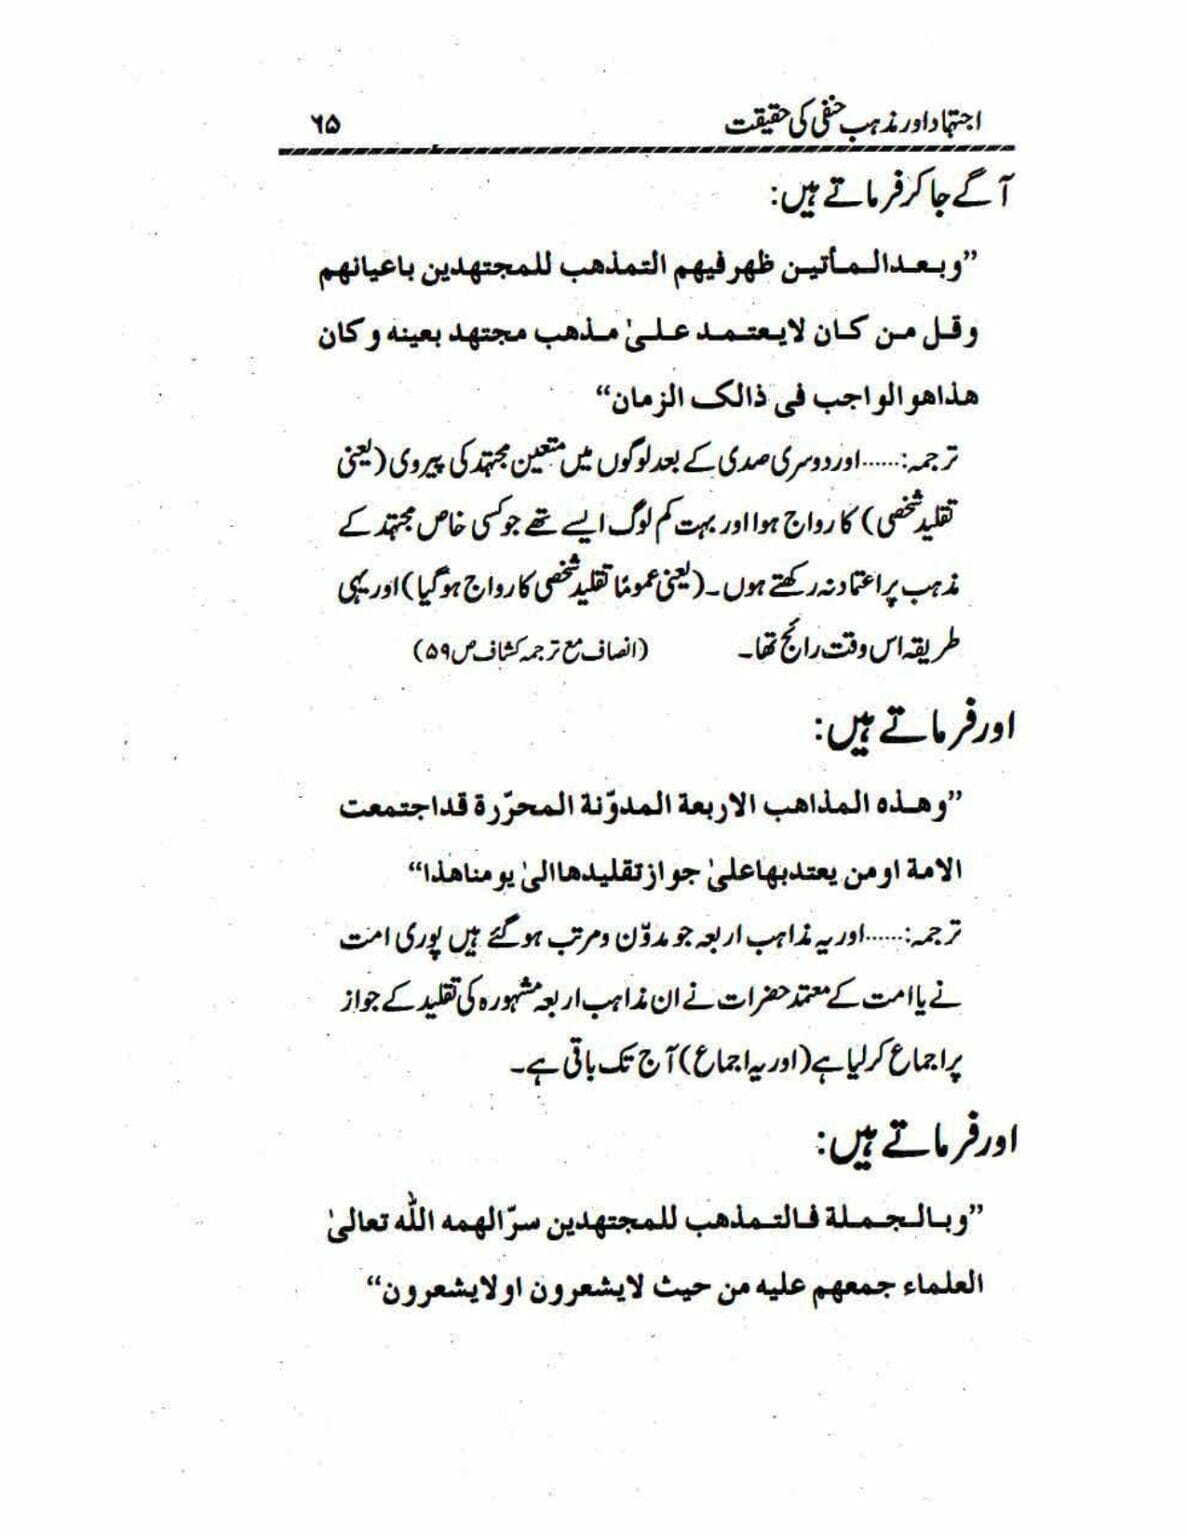 اجتہاد اور مذہب حنفی کی حقیقت ۶۵
آگے جا کر فرماتے ہیں:
”وبعد المأتین ظهر فیهم التمذهب للمجتهدین باعیانهم
وقل من کان لایعتمد علیٰ مذهب مجتهد بعینه وکان
هذا هو الواجب فی ذالک الزمان“
ترجمہ:......اور دوسری صدی کے بعد لوگوں میں متعین مجتہد کی پیروی (یعنی
تقلید شخصی) کا رواج ہوا اور بہت کم لوگ ایسے تھے جو کسی خاص مجتہد کے
مذہب پر اعتماد نہ رکھتے ہوں۔ (یعنی عموماً تقلید شخصی کا رواج ہو گیا) اور یہی
طریقہ اس وقت رائج تھا۔ (انصاف مع ترجمہ کشاف ص ۵۹)
اور فرماتے ہیں:
”وهذه المذاهب الاربعة المدوّنة المحرّرة قد اجتمعت
الامة او من یعتد بها علیٰ جواز تقلیدها الیٰ یومنا هذا“
ترجمہ:......اور یہ مذاہب اربعہ جو مدوّن و مرتب ہو گئے ہیں پوری امت
نے یا امت کے معتمد حضرات نے ان مذاہب اربعہ مشہورہ کی تقلید کے جواز
پر اجماع کر لیا ہے (اور یہ اجماع) آج تک باقی ہے۔
اور فرماتے ہیں:
”وبالجملة فالتمذهب للمجتهدین سرّ الهمه الله تعالیٰ
العلماء جمعهم علیه من حیث لایشعرون او لایشعرون“